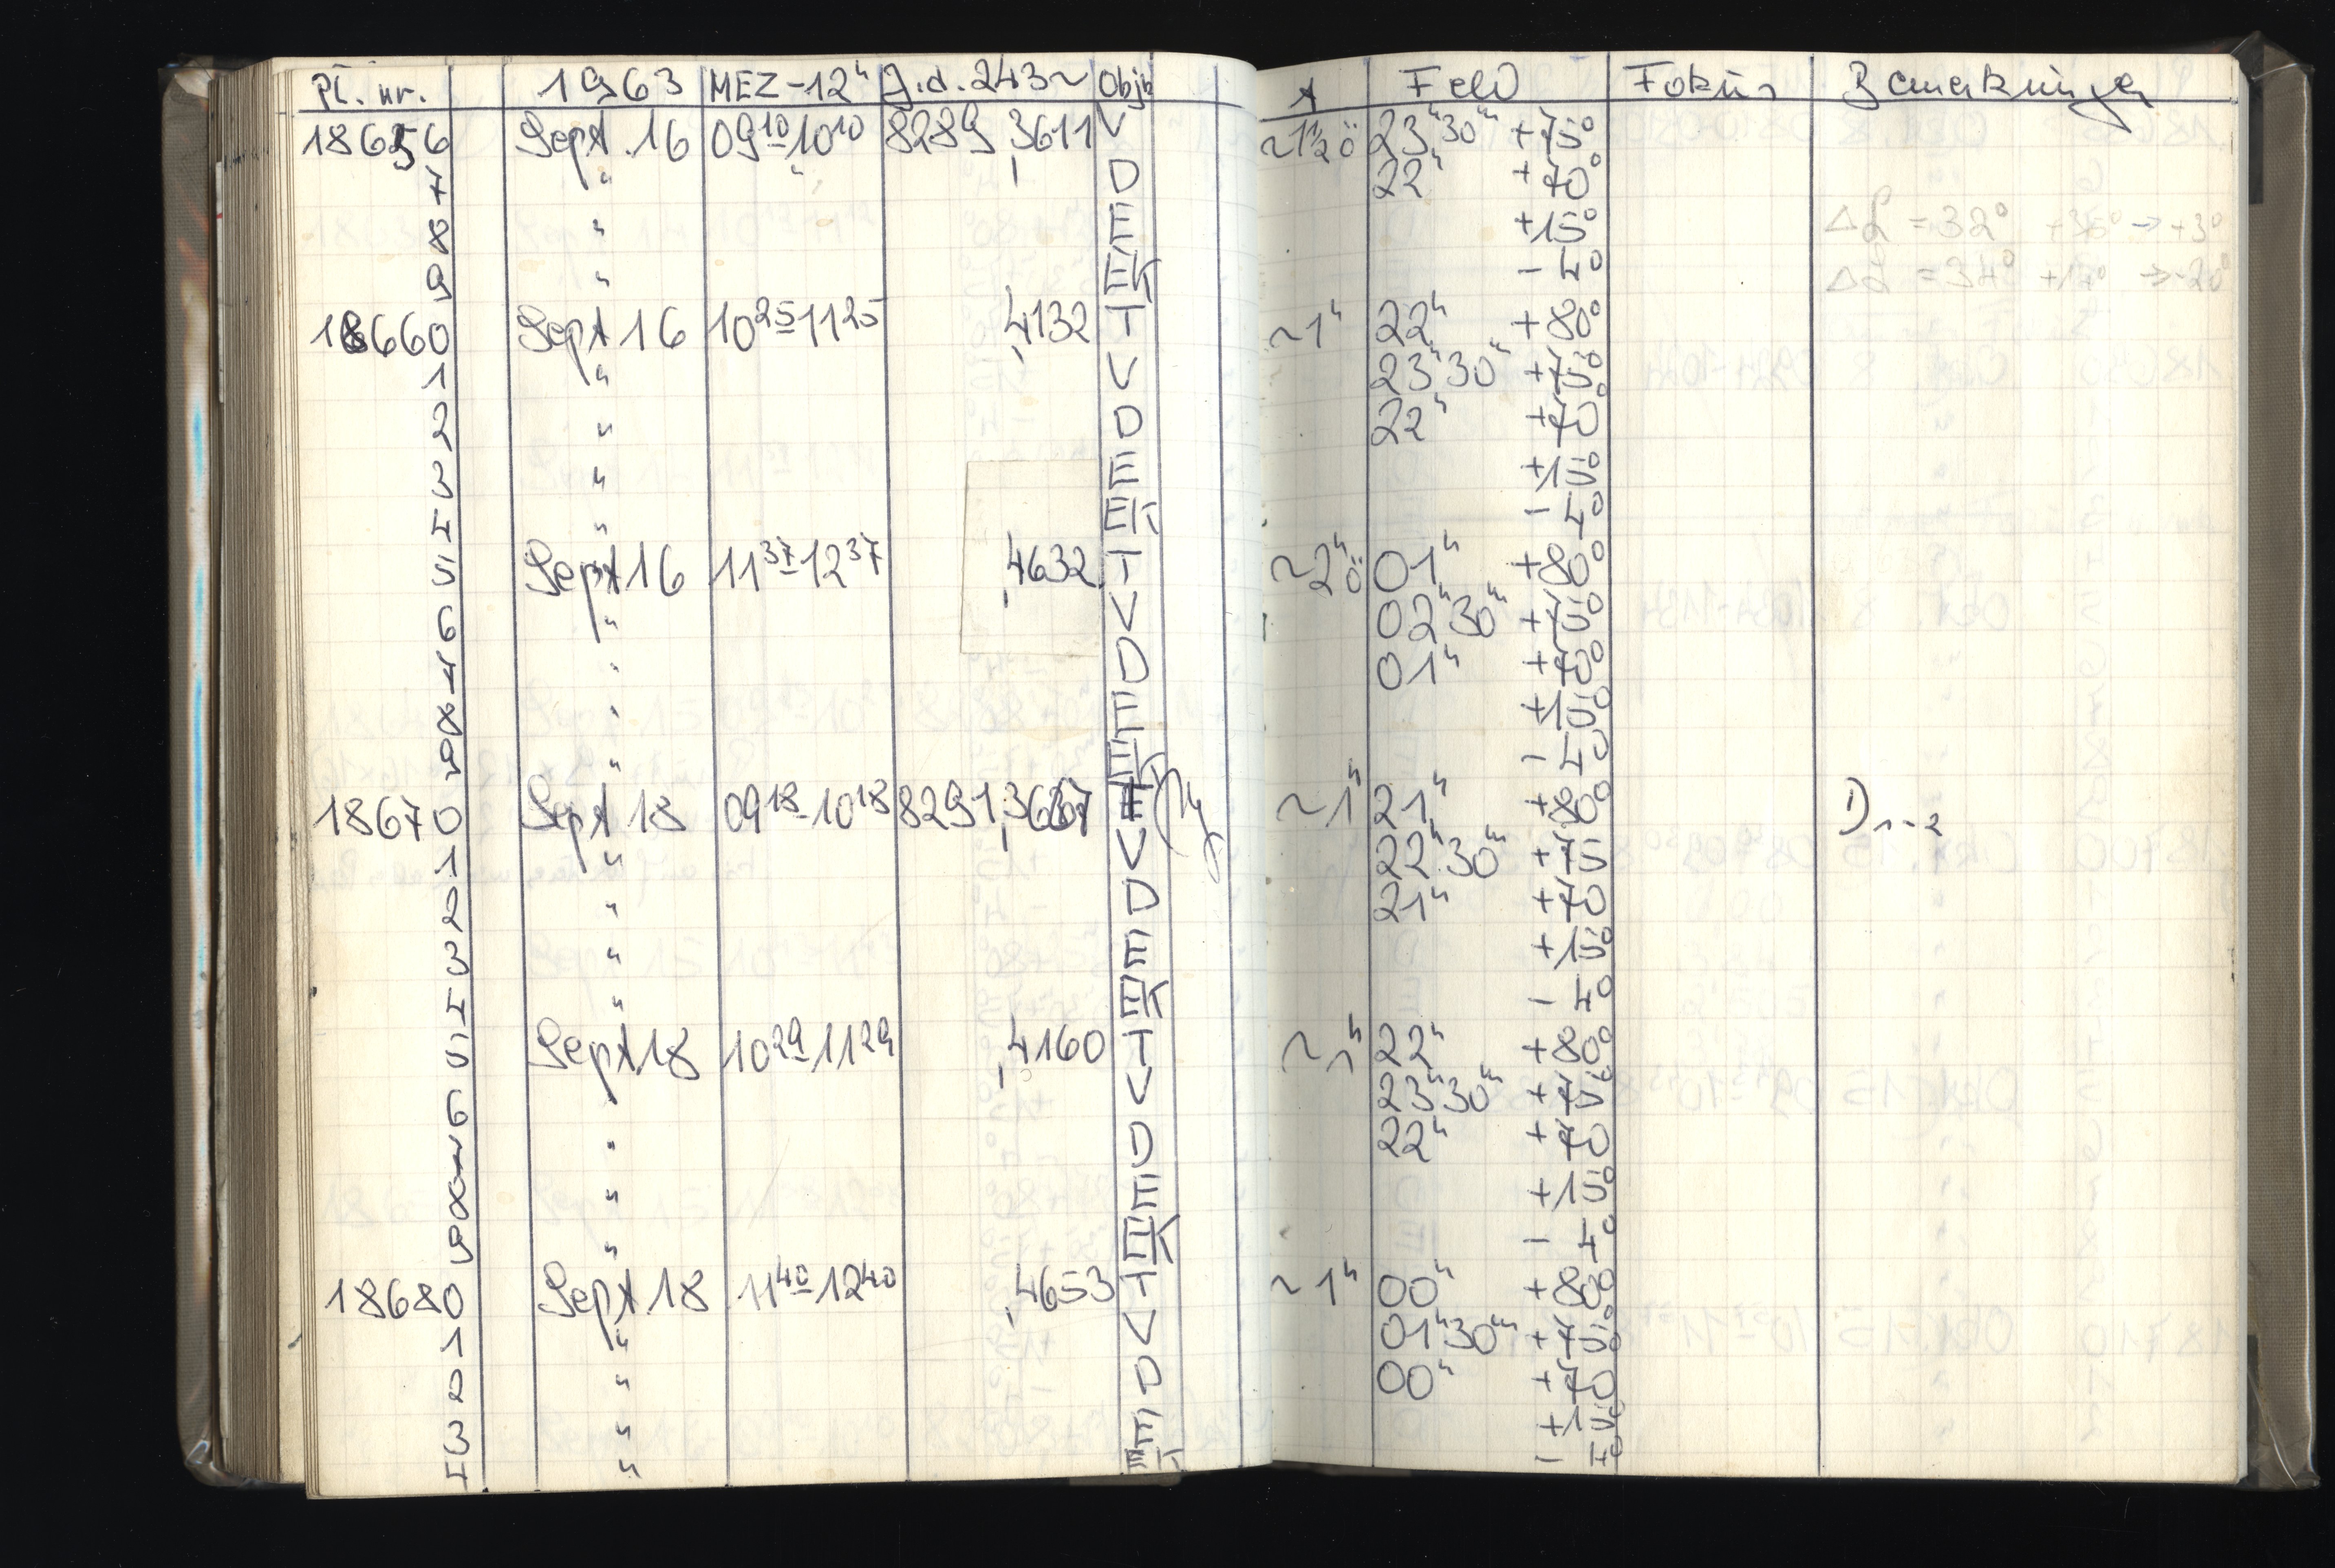 Pl. nr. 1963 MEZ-12ʰ J.d. 243~ Objk t Feld Fokus Bemerkungen
18656 Sept. 16 09¹⁰-10¹⁰ 8289,3611 V ~1ʰ20 23ʰ30ᵐ +75°
7 " " , D 22ʰ +70°
8 " E +15° Δδ = 32° +35° → +3°
9 " -4° Δδ = 34° +17° → -20°
18660 Sept 16 10²⁵-11²⁵ ,4132 T ~1ʰ 22ʰ +80°
1 " V 23ʰ30ᵐ +75°
2 " D 22ʰ +70°
3 " E +15°
4 " -4°
5 Sept 16 11³⁷-12³⁷ ,4632 T ~2ʰ0 01ʰ +80°
6 " V 02ʰ30ᵐ +75°
7 " D 01ʰ +70°
8 " E +15°
9 " -4°
18670 Sept 18 09¹⁸-10¹⁸ 8291,3667 T ~1ʰ 21ʰ +80° 1) 1-2
1 " V 22ʰ30ᵐ +75
2 " D 21ʰ +70
3 " E +15°
4 " -4°
5 Sept 18 10²⁹-11²⁹ ,4160 T ~1ʰ 22ʰ +80°
6 " V 23ʰ30ᵐ +75°
7 " D 22ʰ +70
8 " E +15°
9 " -4°
18680 Sept 18 11⁴⁰-12⁴⁰ ,4653 T ~1ʰ 00ʰ +80
1 " V 01ʰ30ᵐ +75°
2 " D 00ʰ +70
3 " E +15°
4 " -4°